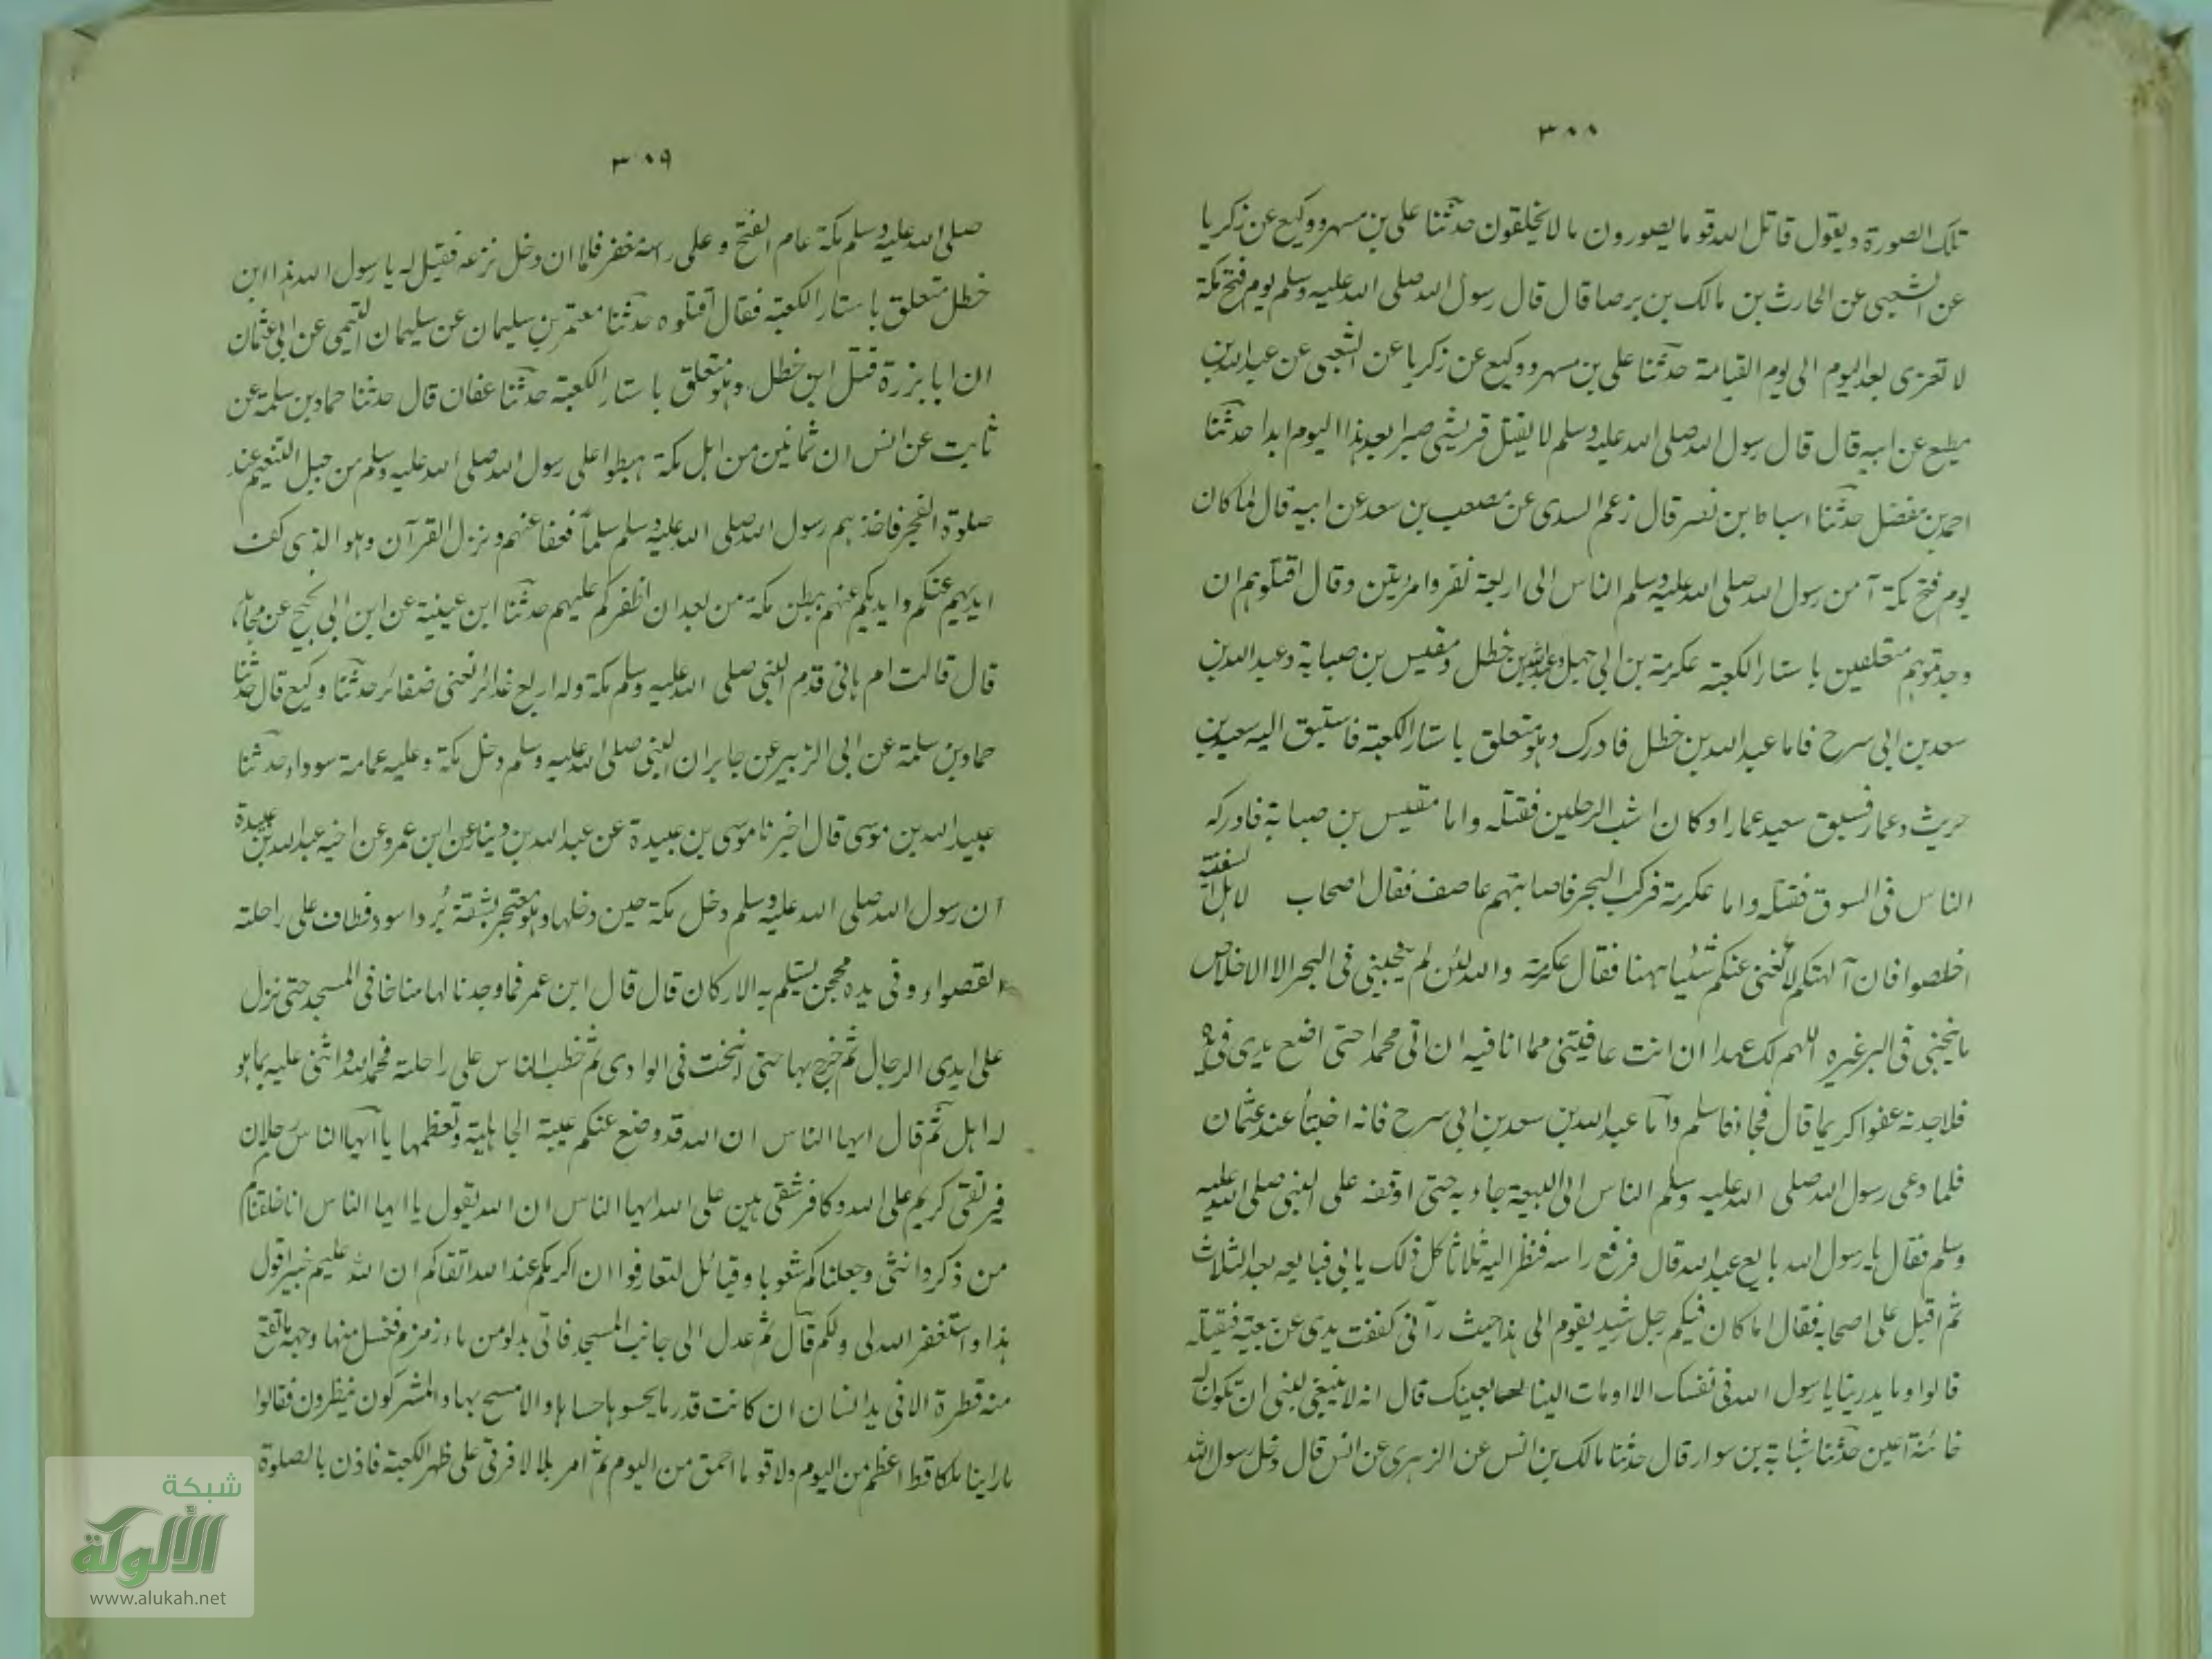 ٣٠٨
تلك الصورة ويقول قاتل الله قوما يصورون ما لا يخلقون حدثنا على بن مسهر ووكيع عن زكريا
عن الشعبى عن الحارث بن مالك بن برصا قال قال رسول الله صلى الله عليه وسلم يوم فتح مكة
لا تغزى بعد اليوم الى يوم القيامة حدثنا على بن مسهر ووكيع عن زكريا عن الشعبى عن عبد الله بن
مطيع عن ابيه قال قال رسول الله صلى الله عليه وسلم لا يقتل قريشى صبرا بعد هذا اليوم ابدا حدثنا
احمد بن مفضل حدثنا اسباط بن نصر قال زعم السدى عن مصعب بن سعد عن ابيه قال لما كان
يوم فتح مكة آمن رسول الله صلى الله عليه وسلم الناس الى اربعة نفر وامرتين وقال اقتلوهم ان
وجدتموهم متعلقين باستار الكعبة عكرمة بن ابى جهل وعبد الله بن خطل ومقيس بن صبابة وعبد الله بن
سعد بن ابى سرح فاما عبد الله بن خطل فادرك وهو متعلق باستار الكعبة فاستبق اليه سعيد بن
حريث وعمار فسبق سعيد عمارا وكان اشب الرجلين فقتله واما مقيس بن صبابة فادركه
الناس فى السوق فقتله واما عكرمة فركب البحر فاصابتهم عاصف فقال اصحاب السفينة لاهل السفينة
اخلصوا فان آلهتكم لا تغنى عنكم شئيا ههنا فقال عكرمة والله لئن لم ينجينى فى البحر الا الاخلاص
ما ينجينى فى البر غيره اللهم لك عهدا ان انت عافيتنى مما انا فيه ان اتى محمدا حتى اضع يدى فى يده
فلاجدنه عفوا كريما قال فجاء فاسلم واما عبد الله بن سعد بن ابى سرح فانه اختبأ عند عثمان
فلما دعى رسول الله صلى الله عليه وسلم الناس الى البيعة جاء به حتى اوقفه على النبى صلى الله عليه
وسلم فقال يا رسول الله بايع عبد الله قال فرفع راسه فنظر اليه ثلاثا كل ذلك يابى فبايعه بعد الثلاث
ثم اقبل على اصحابه فقال اما كان فيكم رجل رشيد يقوم الى هذا حيث رآنى كففت يدى عن بيعته فيقتله
قالوا وما يدرينا يا رسول الله فى نفسك الا اومات الينا بعينك قال انه لا ينبغى لنبى ان تكون له
خائنة اعين حدثنا شبابة بن سوار قال حدثنا مالك بن انس عن الزهرى عن انس قال دخل رسول الله
٣٠٩
صلى الله عليه وسلم مكة عام الفتح وعلى راسه مغفر فلما ان دخل نزعه فقيل له يا رسول الله هذا ابن
خطل متعلق باستار الكعبة فقال اقتلوه حدثنا معتمر بن سليمان عن سليمان التيمى عن ابى عثمان
ان ابا برزة قتل ابن خطل وهو متعلق باستار الكعبة حدثنا عفان قال حدثنا حماد بن سلمة عن
ثابت عن انس ان ثمانين من اهل مكة هبطوا على رسول الله صلى الله عليه وسلم من جبل التنعيم عند
صلوة الفجر فاخذهم رسول الله صلى الله عليه وسلم سلماً فعفا عنهم ونزل القرآن وهو الذى كف
ايديهم عنكم وايديكم عنهم ببطن مكة من بعد ان اظفركم عليهم حدثنا ابن عيينة عن ابن ابى نجيح عن مجاهد
قال قالت ام هانى قدم النبى صلى الله عليه وسلم مكة وله اربع غدائر تعنى ضفائر حدثنا وكيع قال حدثنا
حماد بن سلمة عن ابى الزبير عن جابر ان النبى صلى الله عليه وسلم دخل مكة وعليه عمامة سوداء حدثنا
عبيد الله بن موسى قال اخبرنا موسى بن عبيدة عن عبد الله بن دينار عن ابن عمر وعن اخيه عبد الله بن عبيدة
ان رسول الله صلى الله عليه وسلم دخل مكة حين دخلها وهو معتجر بشقة بُرد اسود فطاف على راحلته
القصواء وفى يده محجن يستلم به الاركان قال قال ابن عمر فما وجدنا لها مناخا فى المسجد حتى نزل
على ايدى الرجال ثم خرج بها حتى انيخت فى الوادى ثم خطب الناس على راحلته فحمد الله واثنى عليه بما هو
له اهل ثم قال ايها الناس ان الله قد وضع عنكم عيبة الجاهلية وتعظمها يا ايها الناس رجلان
فبر تقى كريم على الله وكافر شقى هين على الله ايها الناس ان الله يقول يا ايها الناس انا خلقناكم
من ذكر وانثى وجعلناكم شعوبا وقبائل لتعارفوا ان اكرمكم عند الله اتقاكم ان الله عليم خبير اقول
هذا واستغفر الله لى ولكم قال ثم عدل الى جانب المسجد فاتى بدلو من ماء زمزم فغسل منها وجهه ما تقع
منه قطرة الا فى يد انسان ان كانت قدر ما يحسوها حساها والا مسح بها والمشركون ينظرون فقالوا
ما راينا ملكا قط اعظم من اليوم ولا قوما احمق من اليوم ثم امر بلالا فرقى على ظهر الكعبة فاذن بالصلوة
شبكة
الألوكة
www.alukah.net